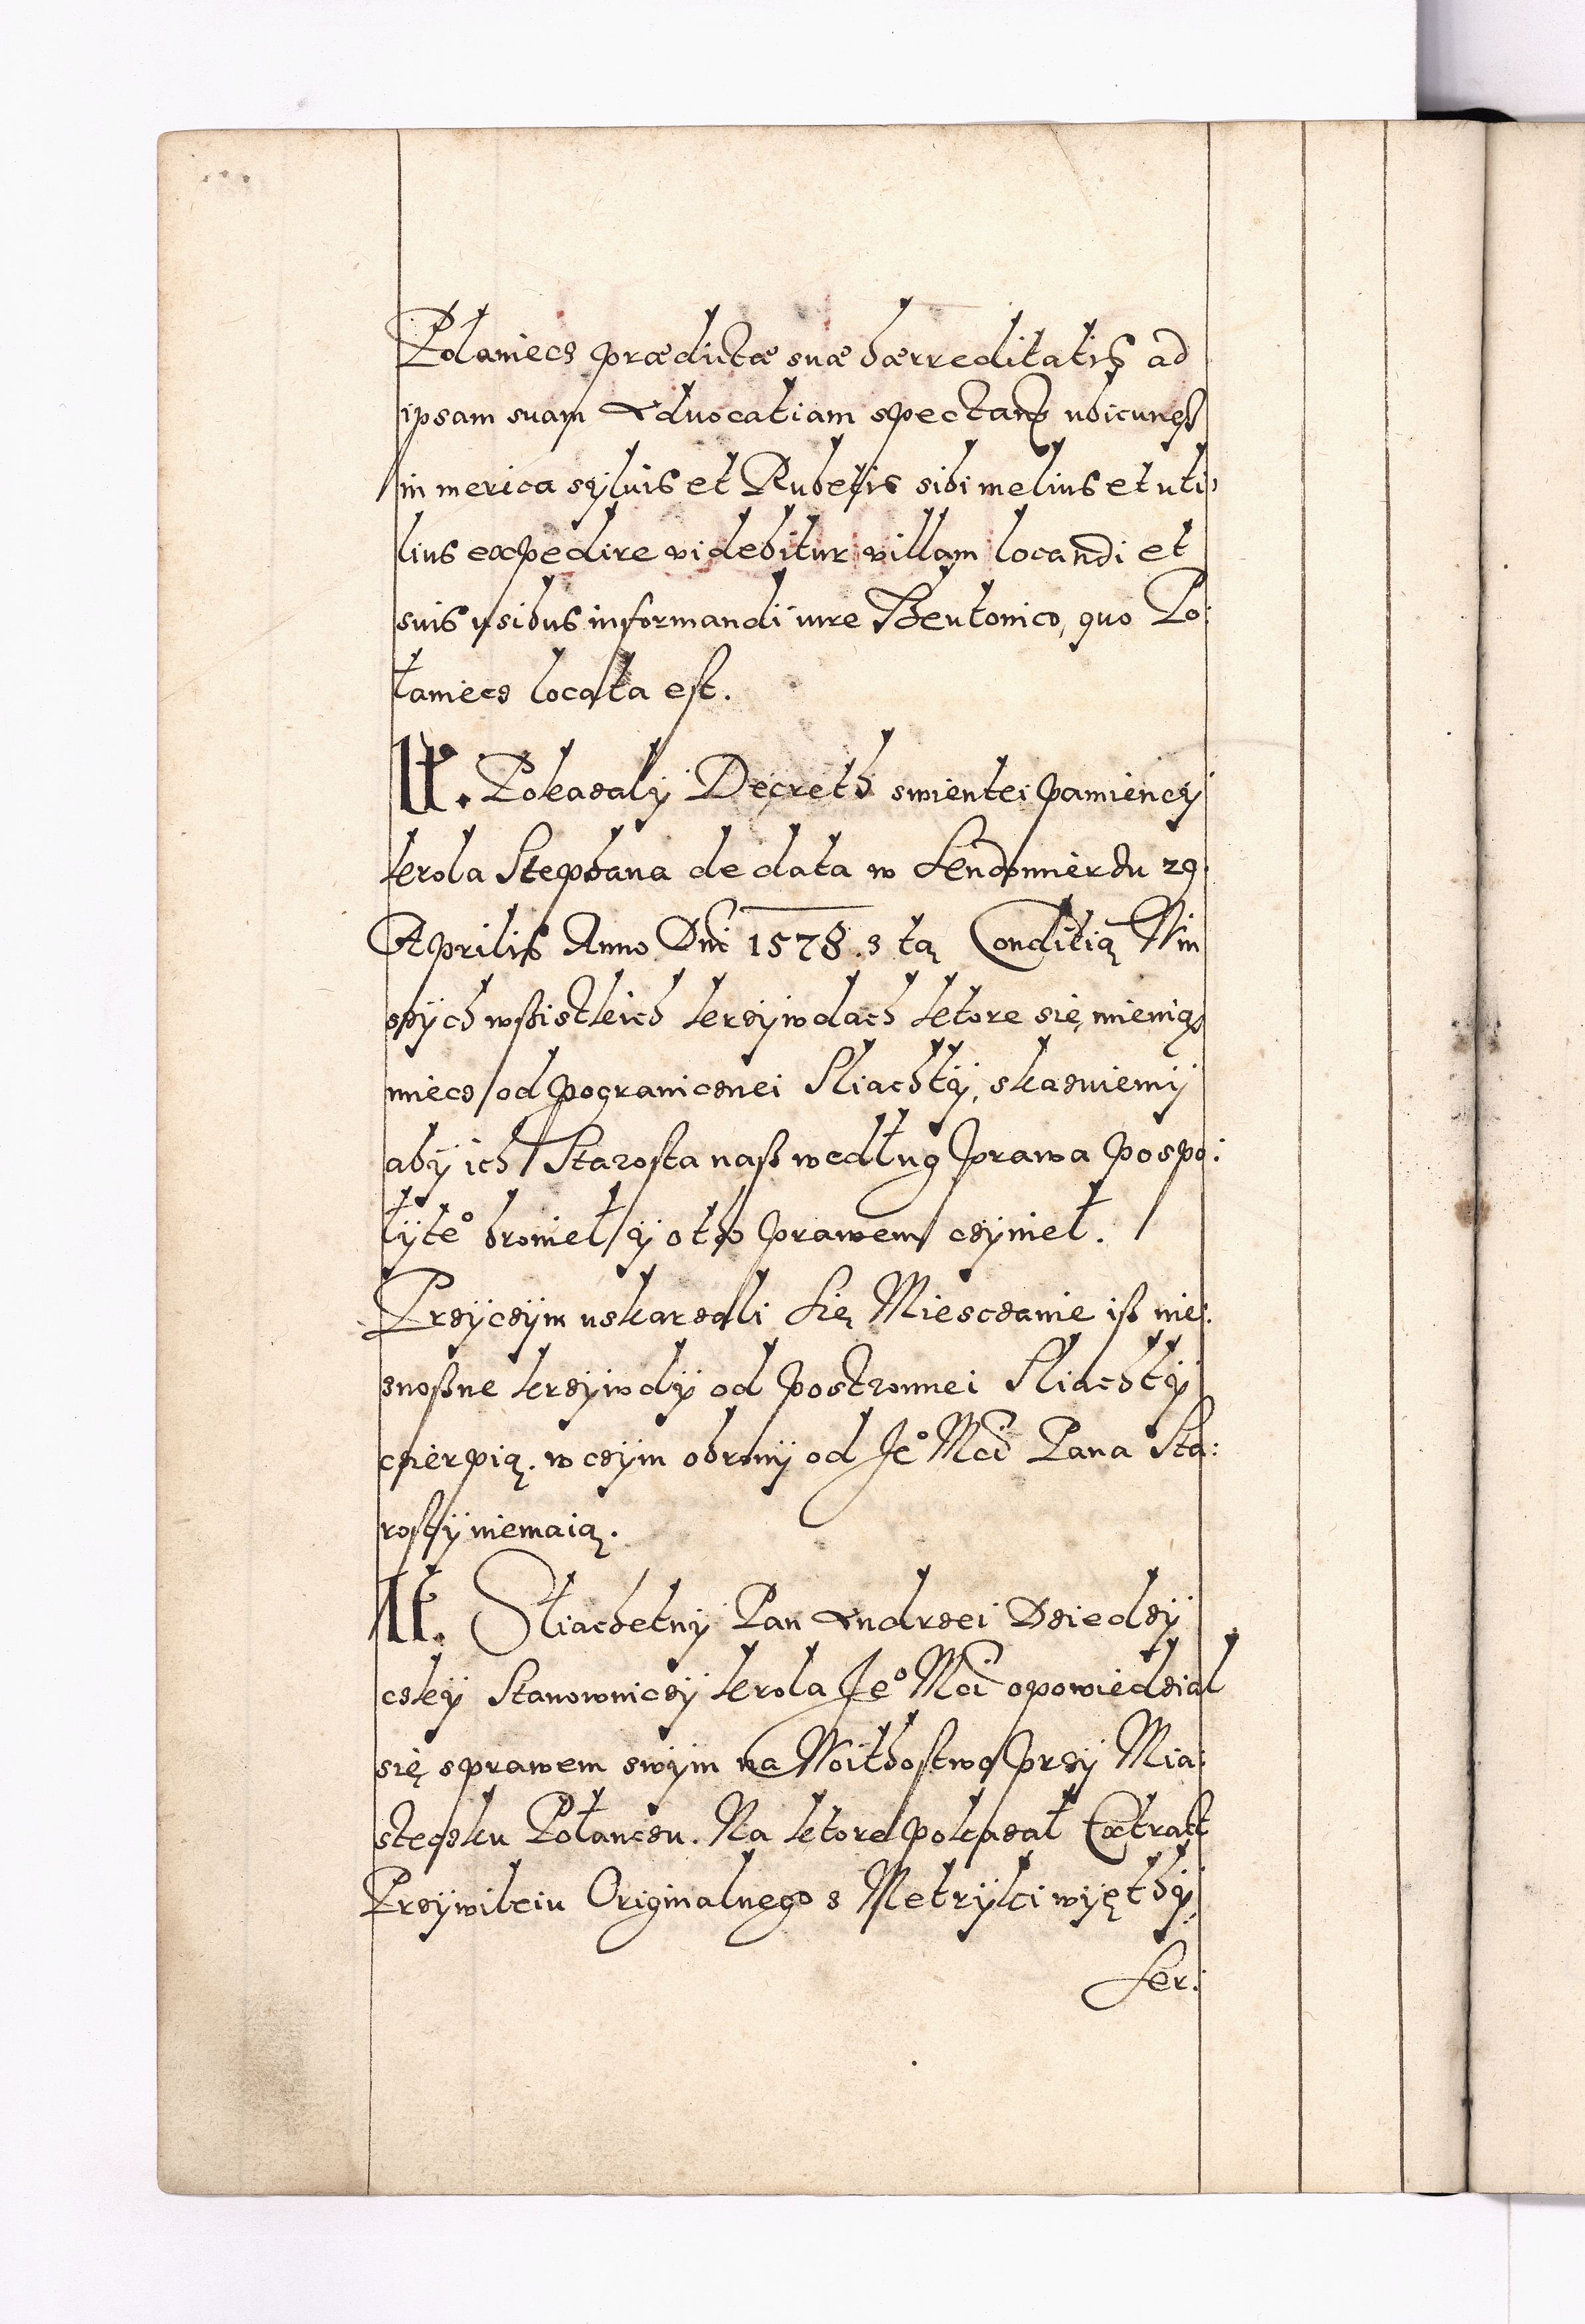 Polaniecz prædictæ suæ hærreditatis ad
ipsam suam Advocatiam spectans ubicunq3
in merica sylvis et Rubetis sibi melius et uti:
lius expedire videbitur villam locandi et
suis usibus informandi iure Theutonico, quo Po:
łaniecz locata est.
It. Pokazaly Decreth swientei pamiency
krola Stephana de data w Sendomierzu 29.
Aprilis Anno Dni 1578. z tą Conditią W in
szych wßistkich krzywdach ktore się mienią
miecz od pogranicznei Sliachty, skazuiemy
aby ich Starosta naß według prawa pospo:
łyte° broniel y o tho prawem czynieł.
Przyczym uskarzali Się Miesczanie iß nie:
znoßne krzywdy od postronnei Sliachty
cierpią. w czym obrony od Je° Mci Pana Sta:
rosty niemaią.
It. Sliachetny Pan Andrzei Dziedzy
czky Stanowniczy krola Je° Mci opowiedzial
się z prawem swym na Woithostwo przy Mia:
steczku Połanczu. Na ktore pokazał Extrakt
Przywileiu Originalnego z Metryki wyęthy,
Ser: